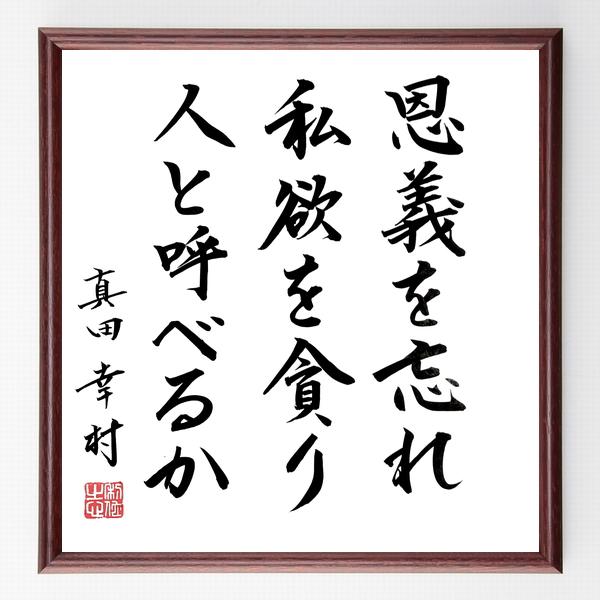 恩義を忘れ
私欲を貪り
人と呼べるか
真田幸村